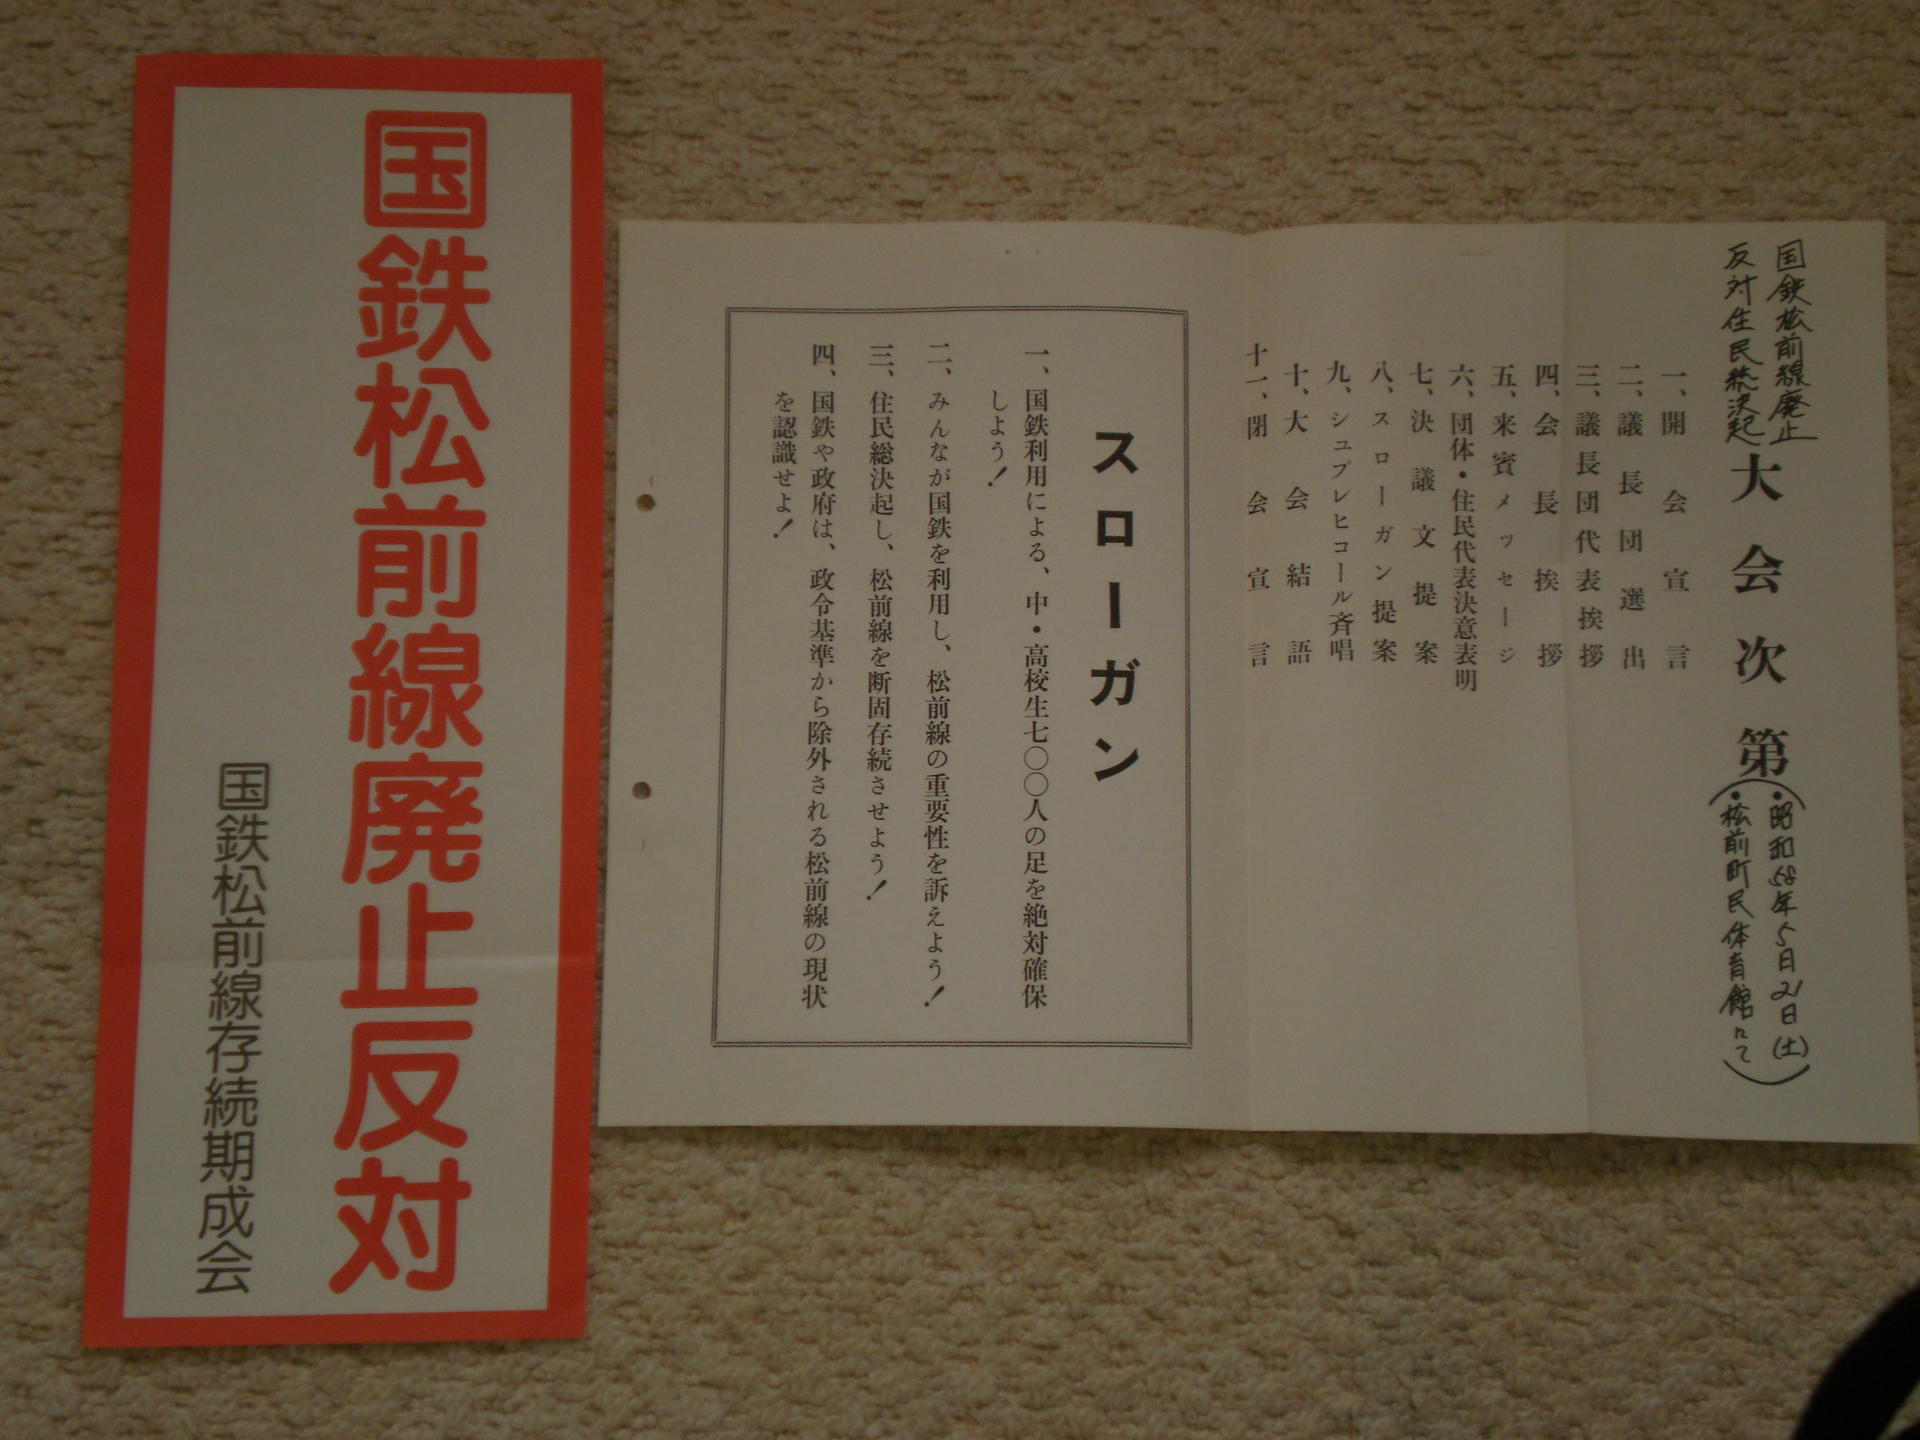 国鉄松前線廃止反対
国鉄松前線存続期成会
国鉄松前線廃止
反対住民総決起
大会次第
(・昭和58年5月21日(土)
・松前町民体育館にて)
一、開会宣言
二、議長団選出
三、議長団代表挨拶
四、会長挨拶
五、来賓メッセージ
六、団体・住民代表決意表明
七、決議文提案
八、スローガン提案
九、シュプレヒコール斉唱
十、大会結語
十一、閉会宣言
スローガン
一、国鉄利用による、中・高校生七〇〇人の足を絶対確保
しよう!
二、みんなが国鉄を利用し、松前線の重要性を訴えよう!
三、住民総決起し、松前線を断固存続させよう!
四、国鉄や政府は、政令基準から除外される松前線の現状
を認識せよ!